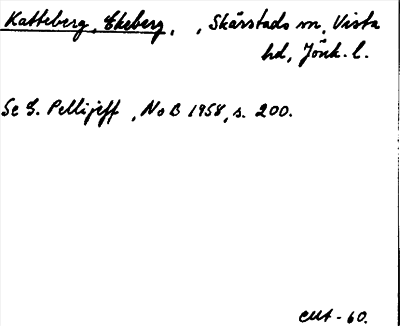 Katteberg, Ekeberg, , Skärstads sn, Vista
hd, Jönk. l.
Se G. Pellijeff, NoB 1958, s. 200.
-60.